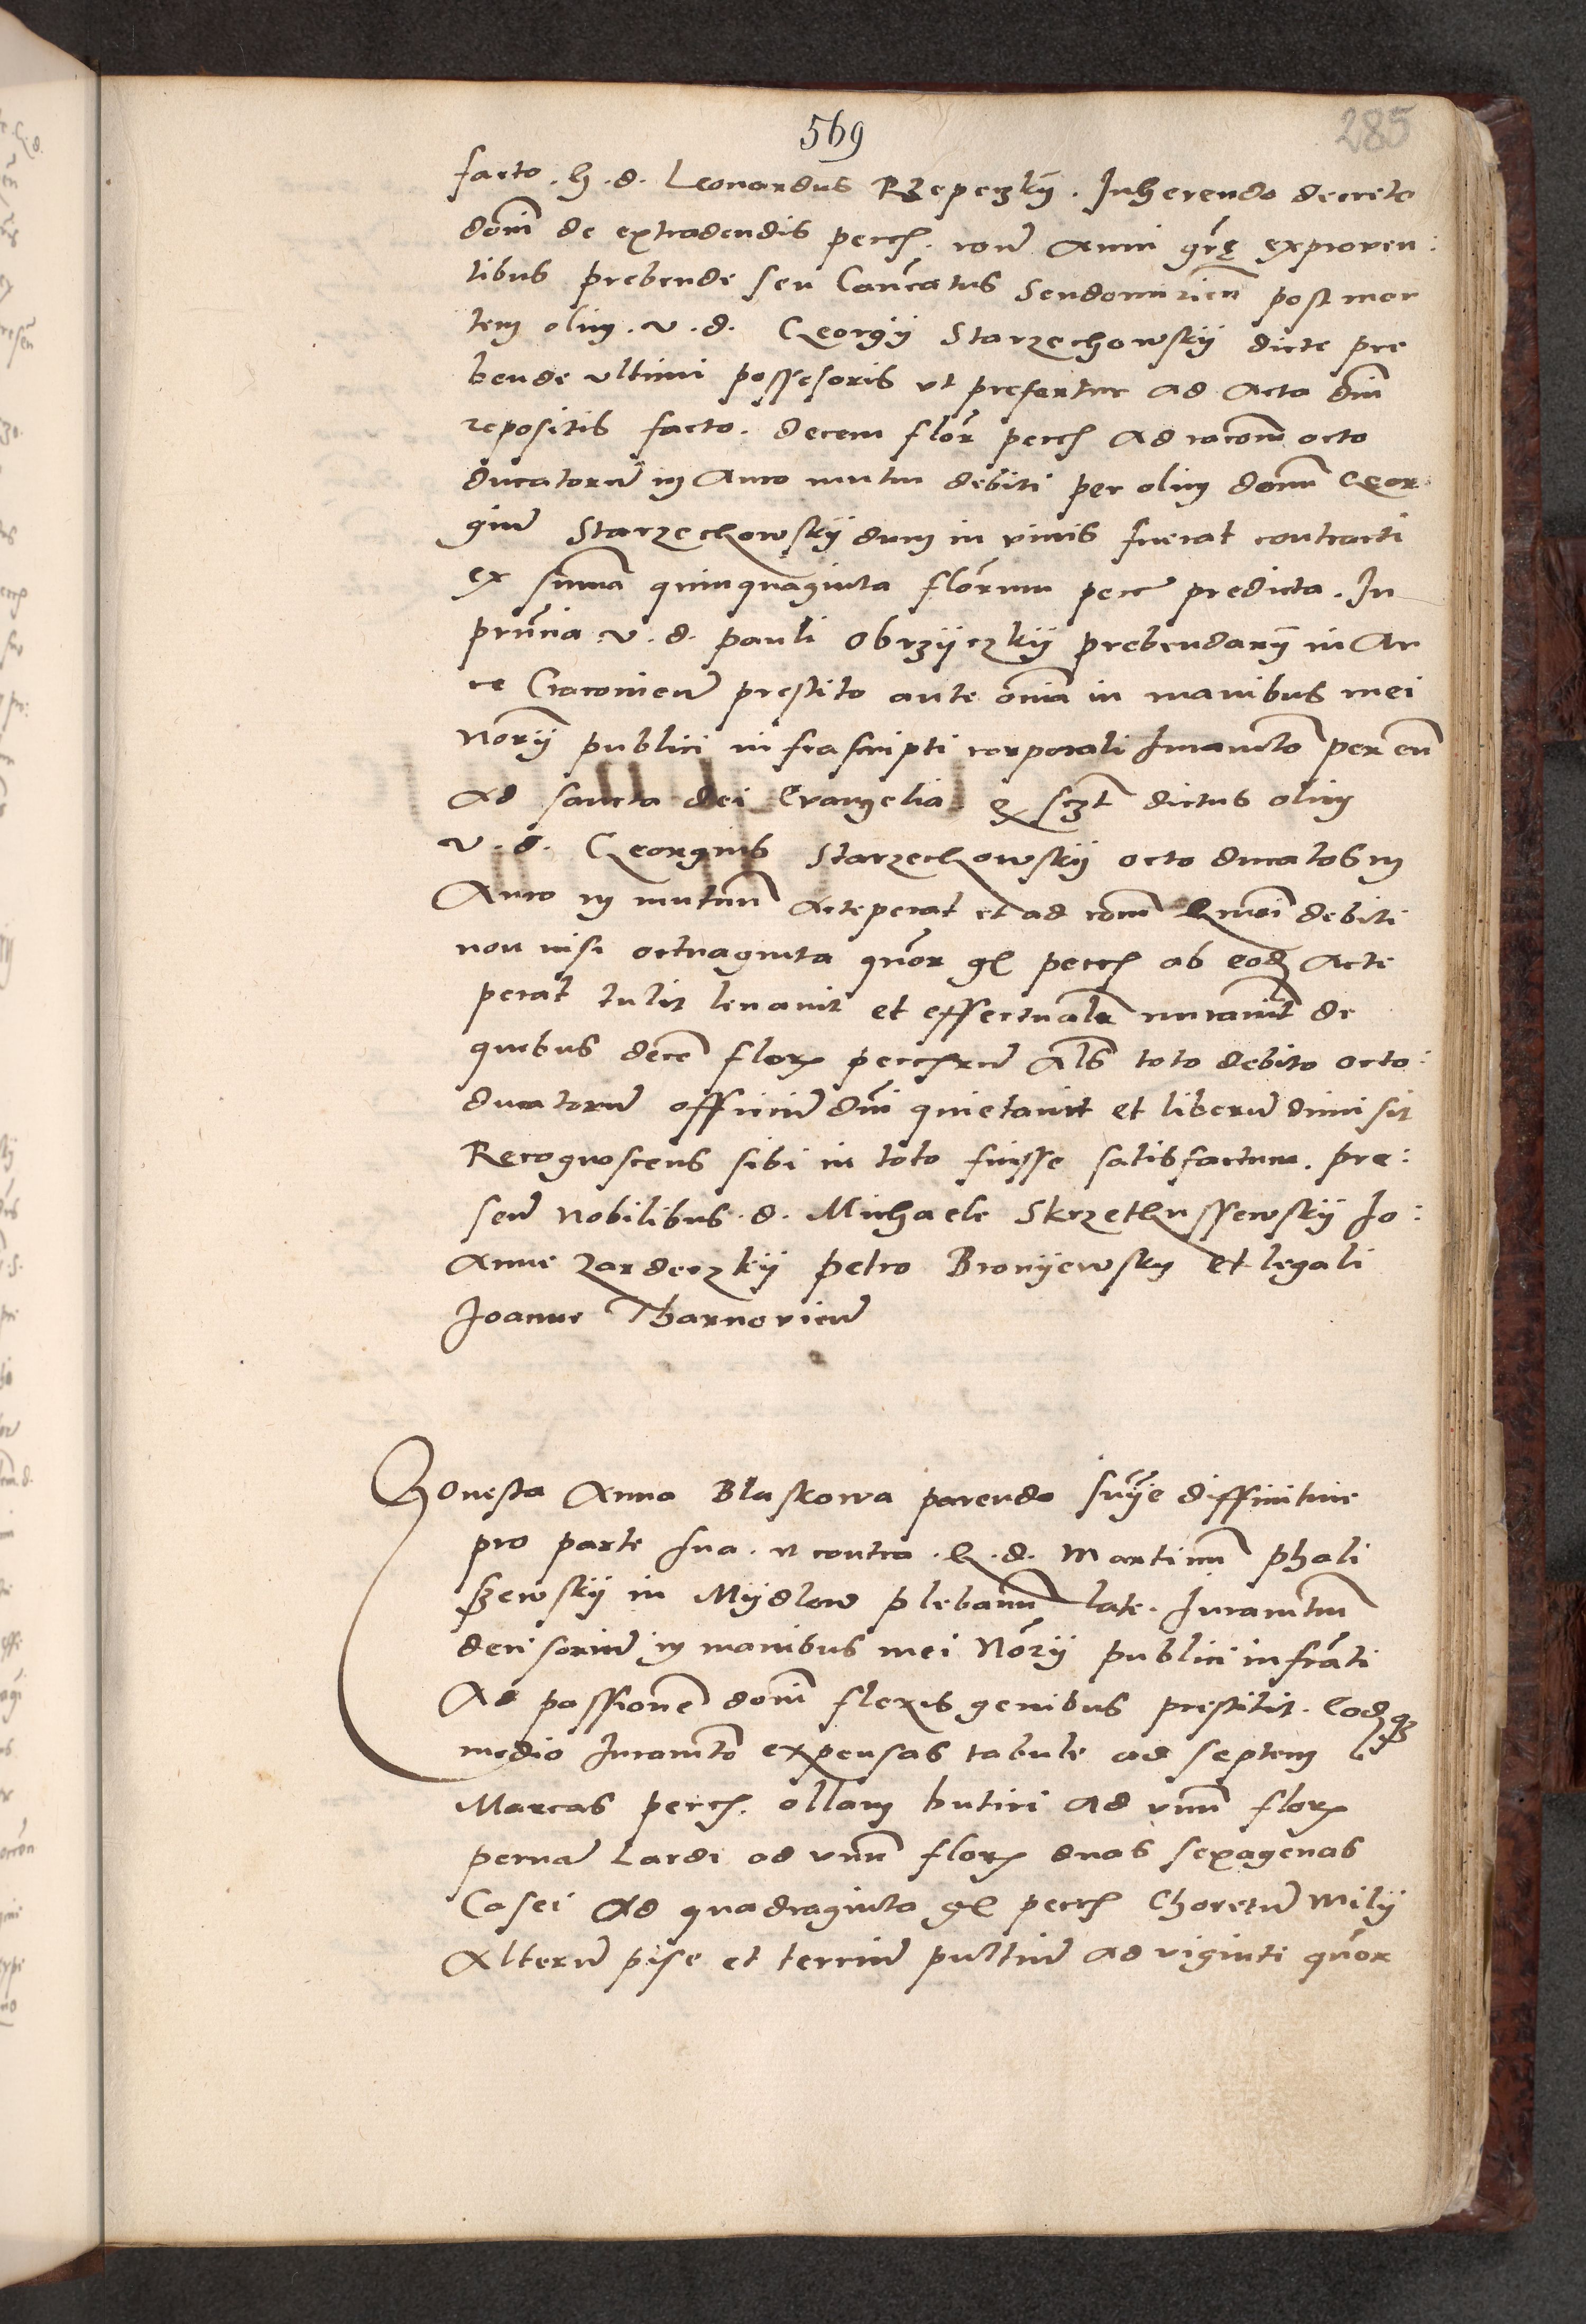 569
285
facto. h. d. Leonardus Rzepeczkÿ. Inherendo decreto
domi de extradendis pecch. coñ Anni grẽ exproven:
tibus prebende seu Canc̃atus Sendomirieñ post mor
tem olim. v. d. Georgÿ Starzechowskÿ dicte pre
bende ultimi possesoris ut prefertur ad Acta dñi
repositis facto. decem floř pecch Ad racoem octo
ducatorũ in Auro mutui debiti per olim domñ Geor
giũ Starzechowskÿ dum in viuis fuerat contracti
ex suma quinquaginta florenu pecc predicta. In
pr̃ncia v. d. pauli Obrzÿczkÿ prebendarÿ in Ar
ce Cracovieñ prestito ante oñia in manibus mei
Norÿ publici infrascripti corporali Iuramto per eũ
Ad sancta dei Evangelia sczt dictus olim
v. d. Georgius Starzechowskÿ octo ducatos in
Auro in mutuũ Acceperat et ad debiti
non nisi octuaginta quor gl pecch ab eod Acce
perat tulit levavit et effectualr de
quibus decẽ florꝭ Als toto debito octo:
ducatorũ officiũ dñi quietavit et liberũ dimisit
Recognoscens sibi in toto fuisse satisfactum. pre:
señ Nobilibus. d. Michaele Skrzethussewskÿ Jo:
Anne Zardeczkÿ petro Bronÿewsky et legali
Joanne Tharnovieñ
Honesta Anna Blaskowa parendo sñÿe diffinitiue
pro parte sua. n contra. h. d. Martinũ phali
szewskÿ in Mÿdlow plebanũ late. Iuramtum
decisoriũ in manibus mei Norÿ publici infrãti
Ad passionẽ domi flexis genibus prestitit. Eodqꝫ
medio Iuramto expensas tabule ad septem
Marcas pecch. ollam butiri Ad unũ florꝭ
pernã Lardi ad unũ florꝭ duas sexagenas
Casei Ad quadraginta gl pecch Choretũ Milÿ
Alterũ pise et terciũ pultiũ ad viginti quor